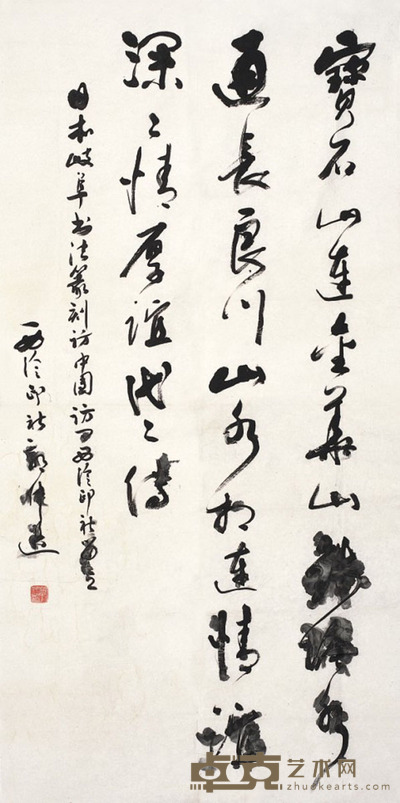 寶石山連金華山錢塘水
通長良川山水相連情誼
深〻情厚誼代〻傳
日本岐阜书法篆刻访中国访问西泠印社留念
西泠印社郭仲選
卓克艺术网
www.zhuokearts.com